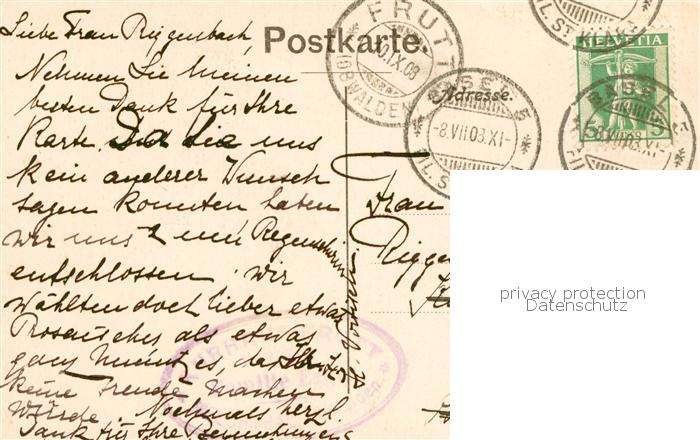 Postkarte.
Adresse.
FRUTT
(OBWALDEN)
HELVETIA
5 5
BASEL
-8.VIII.08.XI-
BASEL
8.VIII.08.XI-
Liebe Frau Riggenbach,
Nehmen Sie meinen
besten Dank für Ihre
Karte. Da Sie uns
kein anderer Wunsch
sagen konnten haben
wir uns z. einem Regenschirm
entschlossen. Wir
wählten doch lieber etwas
Prosaisches als etwas
ganz Unnützes, das Ihnen
keine Freude machen
würde. Nochmals herzl.
Dank für Ihre Bemühungen
Frau
Rigge
privacy protection
Datenschutz